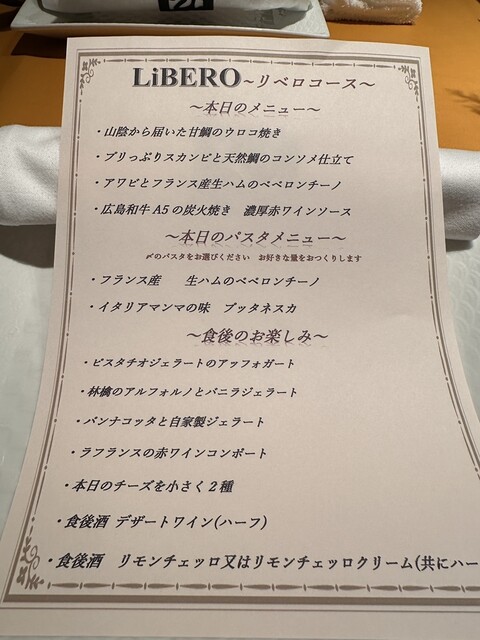 LiBERO～リベロコース～
～本日のメニュー～
・山陰から届いた甘鯛のウロコ焼き
・プリっぷりスカンピと天然鯛のコンソメ仕立て
・アワビとフランス産生ハムのペペロンチーノ
・広島和牛A5の炭火焼き　濃厚赤ワインソース
～本日のパスタメニュー～
〆のパスタをお選びください　お好きな量をおつくりします
・フランス産　　生ハムのペペロンチーノ
・イタリアマンマの味　プッタネスカ
～食後のお楽しみ～
・ピスタチオジェラートのアッフォガート
・林檎のアルフォルノとバニラジェラート
・パンナコッタと自家製ジェラート
・ラフランスの赤ワインコンポート
・本日のチーズを小さく２種
・食後酒 デザートワイン(ハーフ)
・食後酒　リモンチェッロ又はリモンチェッロクリーム(共にハー